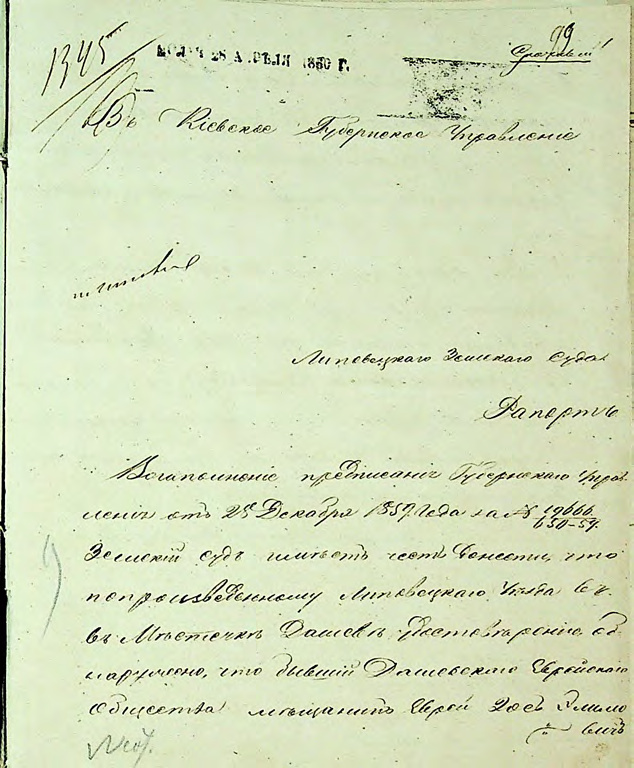 99
1345
28 АПРѢЛЯ 1860 Г.
Въ Кіевское Губернское Управленіе
Липовецкаго Земскаго Суда
Рапортъ
Во исполненіе предписанія Губернскаго Управ
ленія отъ 29 Декабря 1859 года за №
Земскій судъ имѣетъ честь донести, что
по произведенному Липовецкаго Уѣзда
въ Мѣстечкѣ Дашевѣ удостовѣренію об
наружено, что бывшій Дашевскаго Еврейскаго
Общества мѣщанинъ Еврей
вичъ